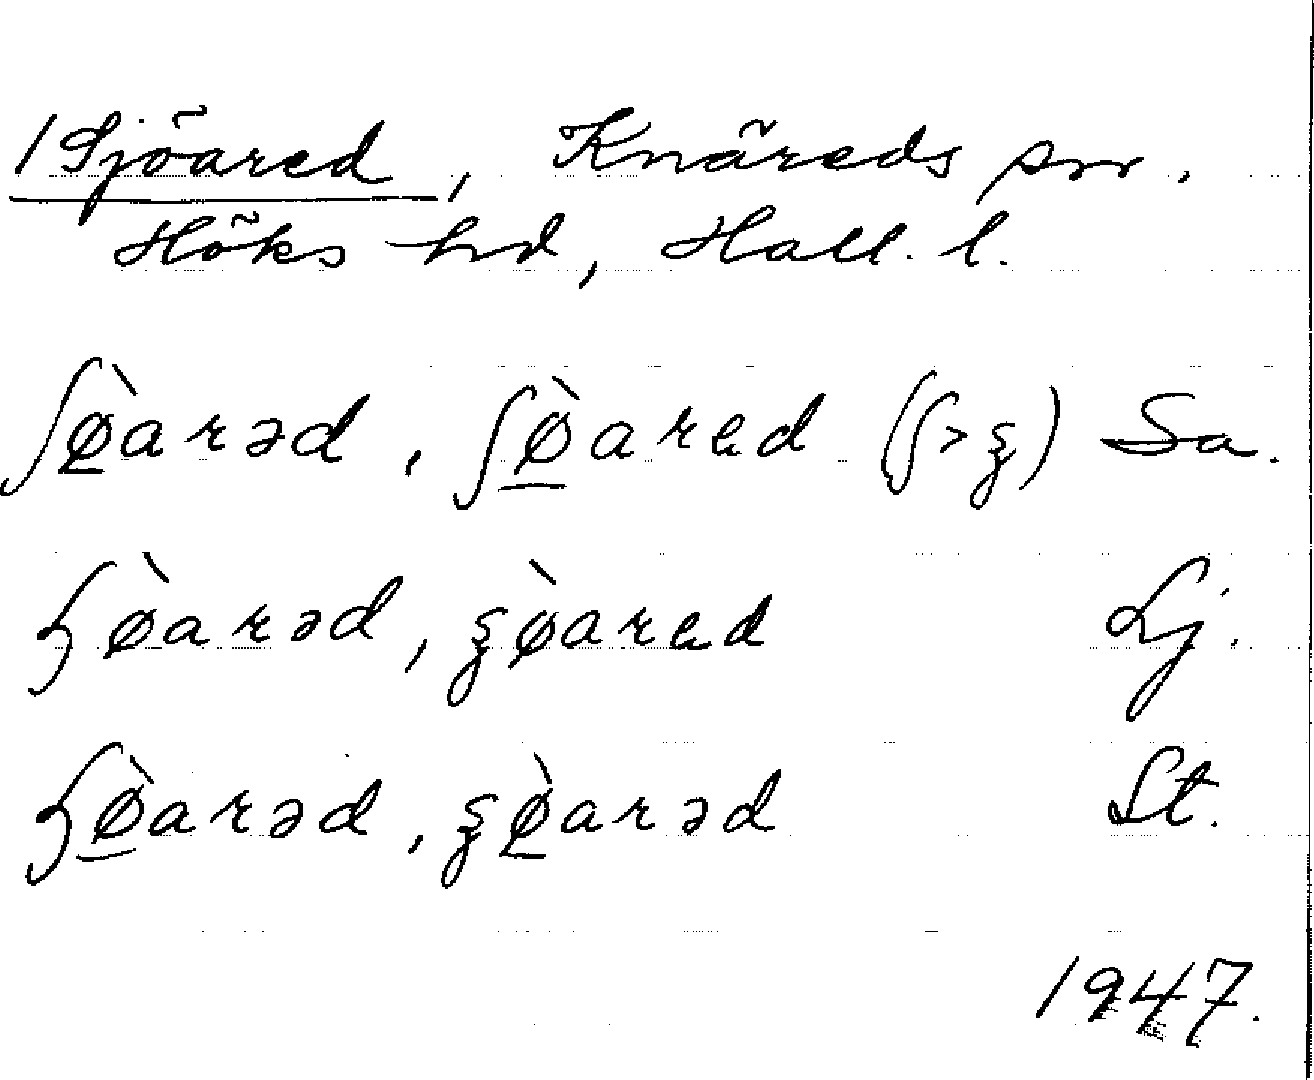 1 Sjöared, Knäreds sn.
Höks hd, Hall. l.
ʃø̠̀arəd, ʃø̠̀ared (ʃ > ξ) Sa.
ʃø̀arəd, ξø̀ared Lj.
ʃø̠̀arəd, ξø̠̀arəd St.
1947.